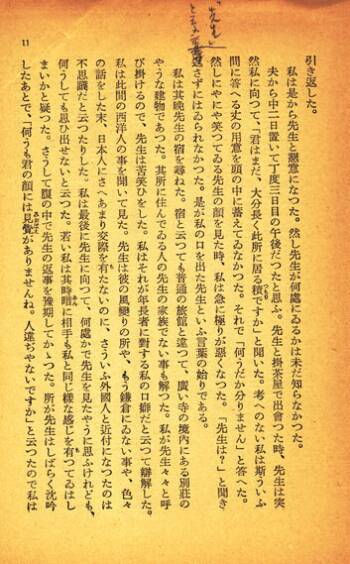 「先生」
と云ふ事
引き返した。
私は是から先生と懇意になつた。然し先生が何處にゐるかは未だ知らなかつた。
夫から中二日置いて丁度三日目の午後だつたと思ふ。先生と掛茶屋で出會つた時、先生は突
然私に向つて、「君はまだ、大分長く此所に居る積ですか」と聞いた。考へのない私は斯ういふ
問に答へる丈の用意を頭の中に蓄えてゐなかつた。それで「何うだか分りません」と答へた。
然しにやにや笑つてゐる先生の顔を見た時、私は急に極りが惡くなつた。「先生は？」と聞き
返さずにはゐられなかつた。是が私の口を出た先生といふ言葉の始りである。
私は其晩先生の宿を尋ねた。宿と云つても普通の旅館と違つて、廣い寺の境内にある別莊の
やうな建物であつた。其所に住んでゐる人の先生の家族でない事も解つた。私が先生々々と呼
び掛けるので、先生は苦笑ひをした。私はそれが年長者に對する私の口癖だと云つて辯解した。
私は此間の西洋人の事を聞いて見た。先生は彼の風變りの所や、もう鎌倉にゐない事や、色々
の話をした末、日本人にさへあまり交際を有たないのに、さういふ外國人と近付になつたのは
不思議だと云つたりした。私は最後に先生に向つて、何處かで先生を見たやうに思ふけれども、
何うしても思ひ出せないと云つた。若い私は其時暗に相手も私と同じ樣な感じを有つてゐはし
まいかと疑つた。さうして腹の中で先生の返事を豫期してかゝつた。所が先生はしばらく沈吟
したあとで、「何うも君の顔には見覺がありませんね。人違ぢやないですか」と云つたので私は
みおぼえ
11